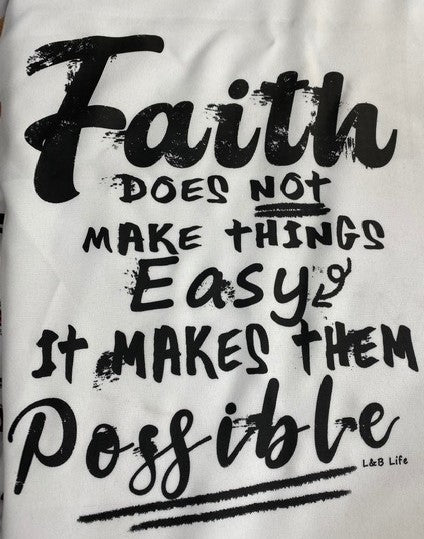 Faith
DOES NOT
MAKE tHINGS
Easy
It MAKES tHEM
Possible
L&B Life